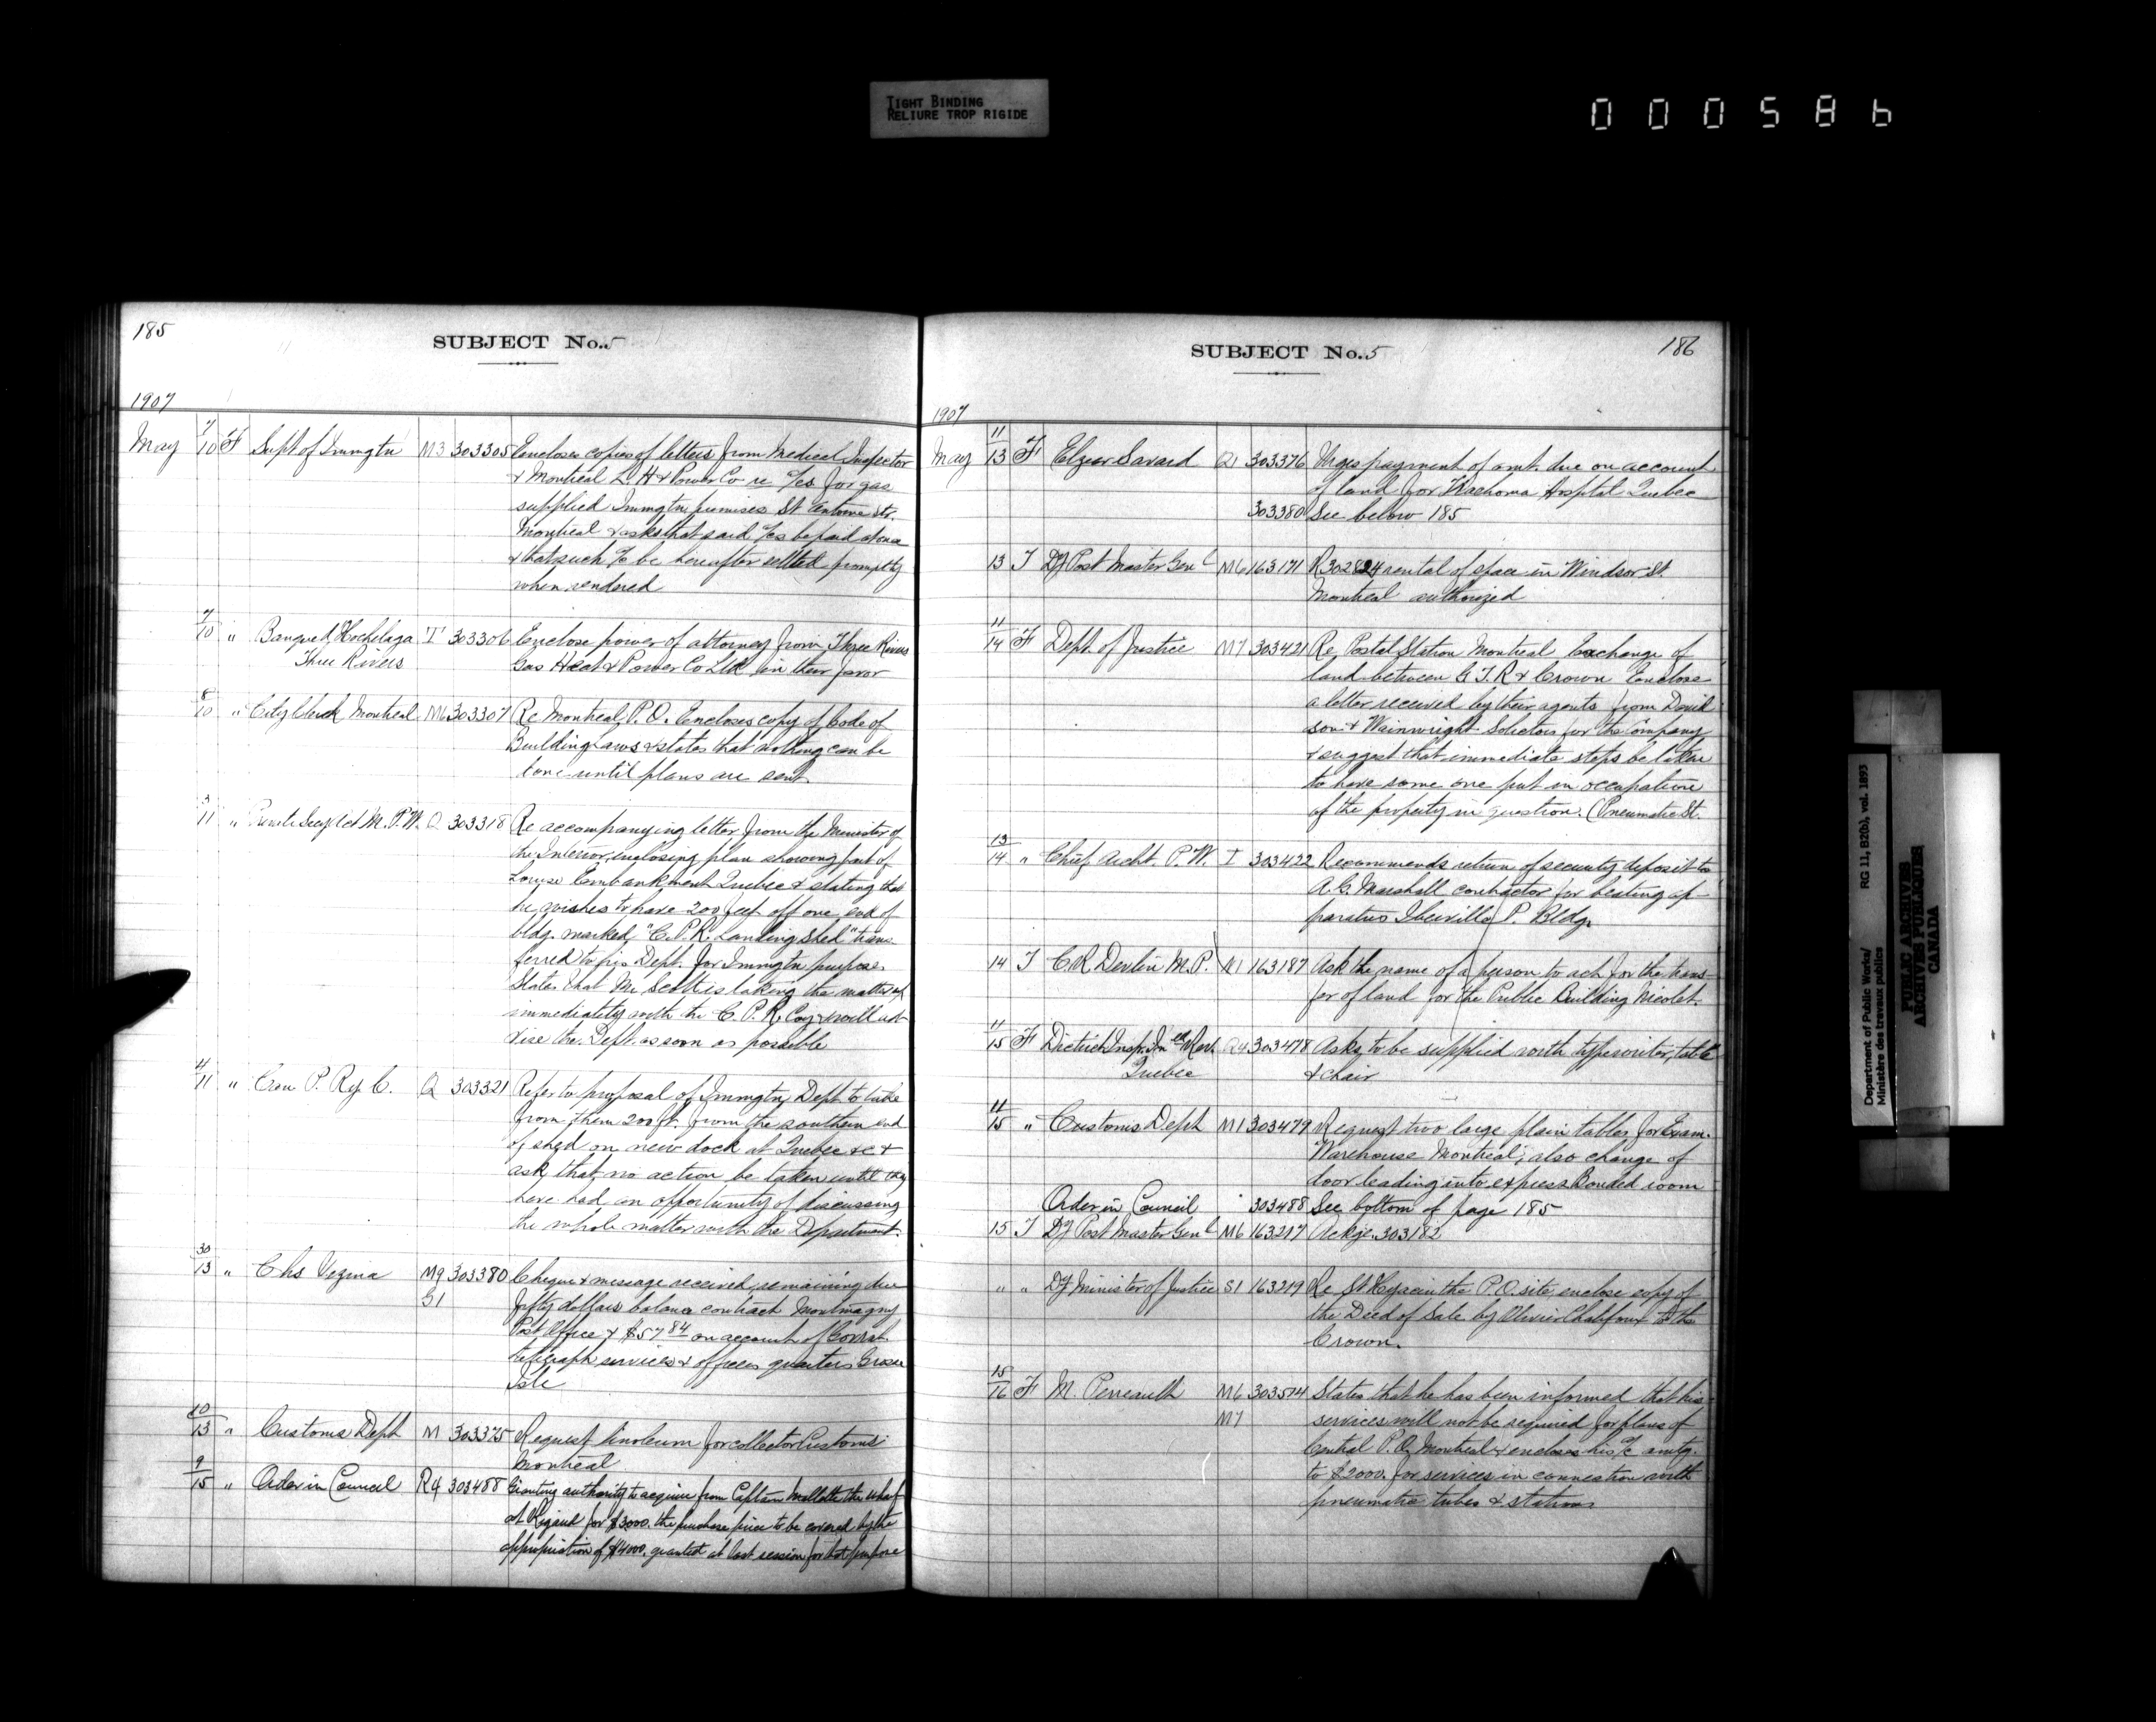 TIGHT BINDING
RELIURE TROP RIGIDE
000586
185
SUBJECT No. 5
1907
May 7/10 F Supt of Immgtn M3 303305 Encloses copies of letters from Medical Inspector
& Montreal L. H & Power Co re a/cs for gas
supplied Immgtn premises St Antoine Str.
Montreal & asks that said a/cs be paid at once
& that such a/c be hereafter settled promptly
when rendered
7/10 " Banque d'Hochelaga T1 303306 Enclose power of attorney from Three Rivers
Three Rivers Gas Heat & Power Co Ltd in their favor
8/10 " City Clerk Montreal M6 303307 Re Montreal P.O. Encloses copy of Code of
Building Laws & states that nothing can be
done until plans are sent.
3/11 " Private Secy Act M.P.W. Q 303318 Re accompanying letter from the Minister of
the Interior, enclosing plan showing part of
Louise Embankment Quebec & stating that
he wishes to have 200 feet off one end of
bldg. marked "C.P.R. Landing Shed" trans-
ferred to his Dept. for Immgtn purposes.
States that Mr Scott is taking the matter up
immediately with the C.P.R. Coy & will ad-
vise the Dept. as soon as possible
4/11 " Can P. Ry C. Q 303321 Refer to proposal of Immgtn Dept to take
from them 200 ft. from the southern end
of shed on new dock at Quebec &c &
ask that no action be taken until they
have had an opportunity of discussing
the whole matter with the Department.
30/13 " Chs Vezina M9 303380 Cheque & message received, remaining due
G1 fifty dollars balance contract Montmagny
Post Office & $57 84 on account of Govrnt
telegraph services & officers quarters Grosse
Isle
10/13 " Customs Dept M 303375 Request linoleum for collector Customs
Montreal
9/15 " Order in Council R4 303488 Granting authority to acquire from Captain Mallette the wharf
at Rigaud for $3000. the purchase price to be covered by the
appropriation of $4000. granted at last session for that purpose
186
SUBJECT No. 5
1907
May 11/13 F Elzear Savard Q1 303376 Urges payment of amt. due on account
of land for Trachoma Hospital Quebec
303380 See below 185
13 T Dy Post Master Genl M6 163171 R 302824 rental of space in Windsor St.
Montreal authorized
11/14 F Dept. of Justice M7 303421 Re Postal Station Montreal Exchange of
land between G.T.R & Crown Enclose
a letter received by their agents from David
son & Wainwright Solicitors for the Company
& suggest that immediate steps be taken
to have some one put in occupation
of the property in question. (Pneumatic St.
13/14 " Chief Archt. P.W. I 303422 Recommends return of security deposit to
A.G. Marshall contractor for heating ap-
paratus Iberville P. Bldg.
14 T C R Devlin M.P. N1 163187 Ask the name of a person to act for the trans-
fer of land for the Public Building Nicolet.
11/15 F Dietrich Insp. Inld Rev. Q4 303478 Asks to be supplied with typewriter, table
Quebec & chair
11/15 " Customs Dept M1 303479 Request two large plain tables for Exam.
Warehouse Montreal; also change of
door leading into express Bonded room
Order in Council " 303488 See bottom of page 185
15 T Dy Post Master Genl M6 163217 Ackge. 303182
" " Dy Minister of Justice S1 163219 Re St Hyacinthe P.O. site, enclose copy of
the Deed of Sale by Olivier Chalifoux to the
Crown.
15/16 F M. Perreault M6 303514 States that he has been informed that his
M7 services will not be required for plans of
Central P.O. Montreal & encloses his a/c amtg.
to $2000. for services in connection with
pneumatic tubes & stations
Department of Public Works/ RG 11, B2(b), vol. 1893
Ministère des travaux publics
PUBLIC ARCHIVES
ARCHIVES PUBLIQUES
CANADA